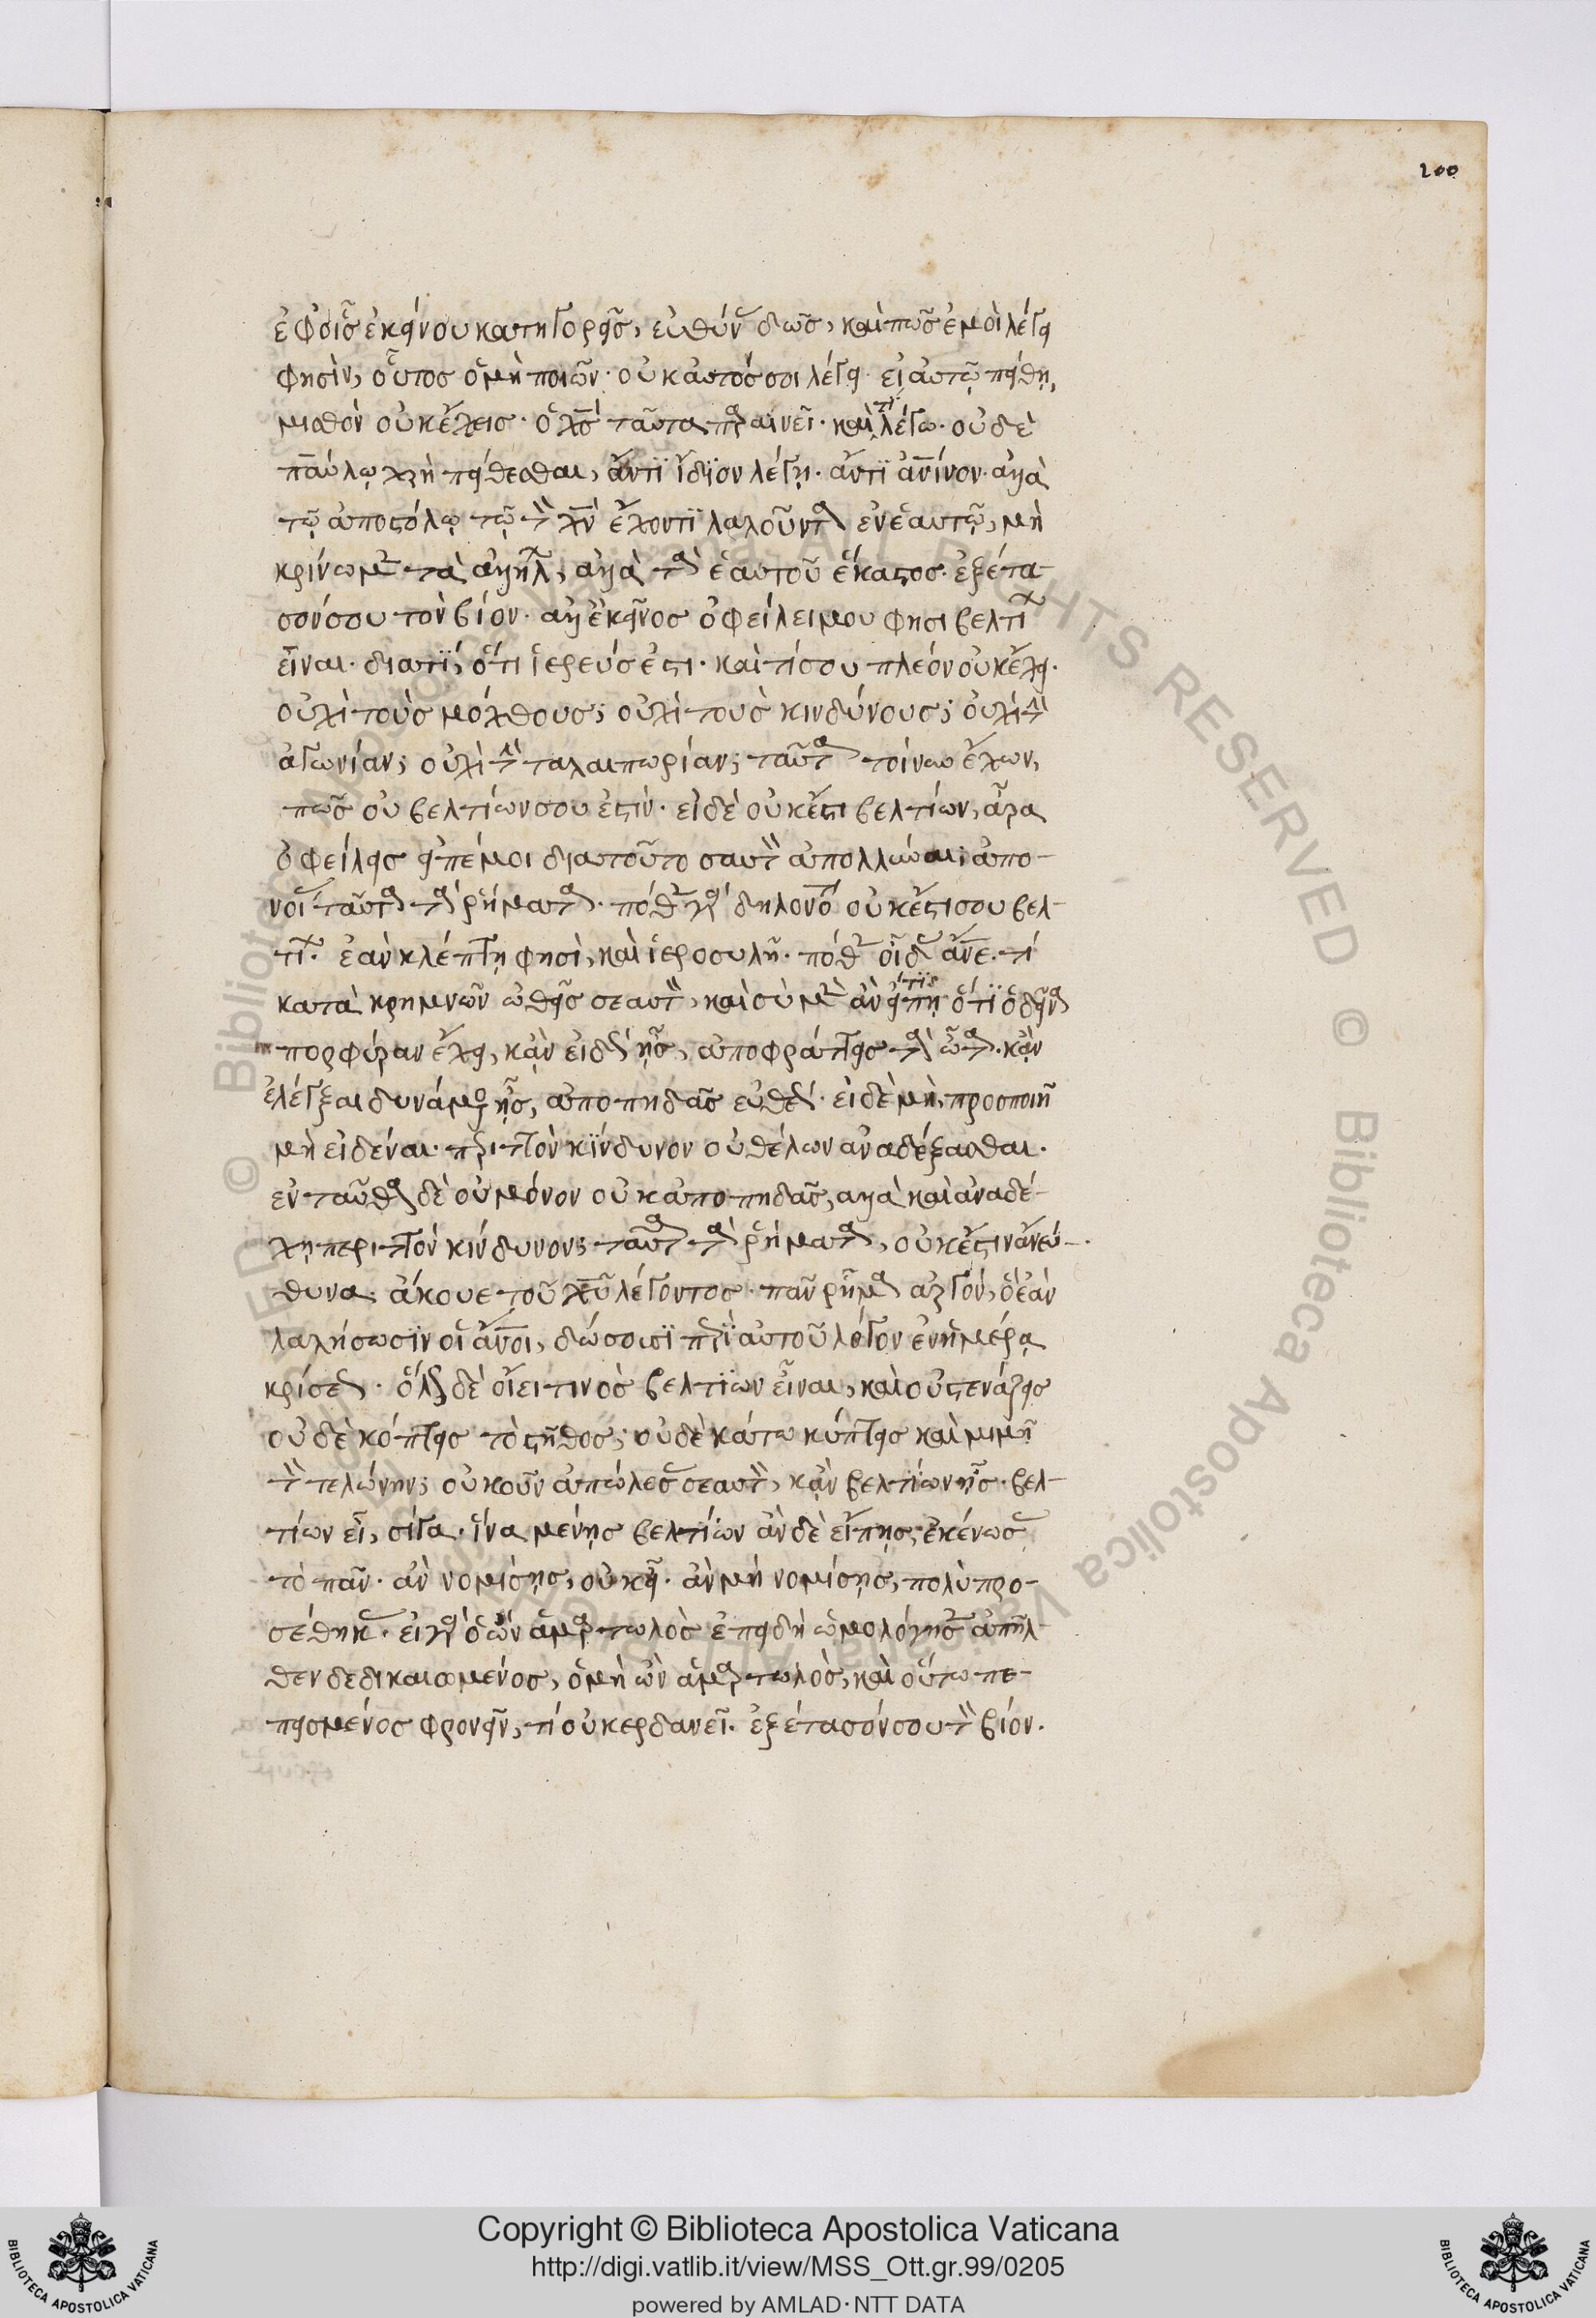 200
ἐφ οἷς ἐκείνου κατηγορεῖς, εὐθύνας δῶς, καὶ πῶς ἐμοὶ λέγει
φησὶν, οὗτος ὃ μὴ ποιῶν· οὐκ αὐτός σοι λέγει· εἰ αὐτῷ πείθῃ,
μισθὸν οὐκ ἔχεις· ὁ χς ταῦτα παραινεῖ· καὶ τί λέγω· οὐδὲ
παύλῳ χρὴ πείθεσθαι, ἄν τϊ ἴδϊον λέγῃ· ἄν τϊ ἀνίνον· ἀλλὰ
τῷ ἀποστόλῳ τῷ τὸν χν ἔχοντϊ λαλοῦντα ἐν ἑαυτῷ, μὴ
κρίνωμεν τὰ ἀλλήλων, ἀλλὰ τὰ ἑαυτοῦ ἕκαστος· ἐξέτα-
σόν σου τὸν βίον· ἀλλ ἐκεῖνος ὀφείλει μου φησι βελτίων
εἶναι· διατϊ, ὅτι ἱερεύς ἐστι· καὶ τί σου πλεόν οὐκ ἔχει·
οὐχὶ τοὺς μόχθους; οὐχὶ τοὺς κινδύνους; οὐχὶ τὴν
ἀγωνίαν; οὐχὶ τὴν ταλαιπωρίαν; ταῦτα τοίνυν ἔχων,
πῶς οὐ βελτίων σου ἐστίν· εἰ δὲ οὐκ ἔστι βελτίων, ἆρα
ὀφείλεις εἰπέ μοι διατοῦτο σαυτὸν ἀπολλύναι; ἀπο-
νοίας ταῦτα τὰ ῥήματα· πόθεν γὰρ δηλονότι οὐκ ἔστι σου βελ-
τίων· ἐὰν κλέπτῃ φησὶ, καὶ ἱεροσυλῇ· πόθεν οἶδας ἄνε· τί
κατὰ κρημνῶν ὠθεῖς σεαυτὸν, καὶ σὺ μὲν ἂν εἴπῃ τϊς ὅτϊ ὁ δεῖνα
πορφύραν ἔχει, κἂν εἰδὼς ᾖς, ἀποφράττεις τὰ ὦτα· κἂν
ἐλέγξαι δυνάμενος ᾖς, ἀποπηδᾶς εὐθέως· εἰ δὲ μὴ, προσποιῇ
μὴ εἰδέναι· περιττὸν κϊνδυνον οὐ θέλων ἀναδέξασθαι·
ἐνταῦθα δὲ οὐ μόνον οὐκ ἀποπηδᾶς, ἀλλὰ καὶ ἀναδέ-
χῃ περιττὸν κίνδυνον; ταῦτα τὰ ῥήματα, οὐκ ἔστιν ἀνεύ-
θυνα· ἄκουε τοῦ χυ λέγοντος· πᾶν ῥῆμα ἀργὸν, ὃ ἐὰν
λαλήσωσϊν οἱ ἄνοι, δώσουσϊ περϊ αὐτοῦ λόγον ἐν ἡμέρᾳ
κρίσεως· ὅλως δὲ οἴει τινὸς βελτϊων εἶναι, καὶ οὐ στενάζεις
οὐδὲ κόπτεις τὸ στῆθος; οὐδὲ κάτω κύπτεις καὶ μιμῇ
τὸν τελώνην; οὐκοῦν ἀπώλεσας σεαυτὸν, κἂν βελτίων ᾖς· βελ-
τίων εἶ, σίγα· ἵνα μένῃς βελτϊων ἂν δὲ εἴπῃς, ἐκένωσας
τὸ πᾶν· ἂν νομίσῃς, οὐκ εἶ· ἂν μὴ νομίσῃς, πολὺ προ-
σέθηκας· εἰ γὰρ ὁ ὢν ἁμαρτωλὸς ἐπειδὴ ὡμολόγησεν ἀπῆλ-
θεν δεδικαιωμένος, ὁ μὴ ὢν ἁμαρτωλὸς, καὶ οὕτω πε-
πεισμένος φρονεῖν, τί οὐ κερδανεῖ· ἐξέτασόν σου τὸν βίον·
Copyright © Biblioteca Apostolica Vaticana
http://digi.vatlib.it/view/MSS_Ott.gr.99/0205
powered by AMLAD·NTT DATA